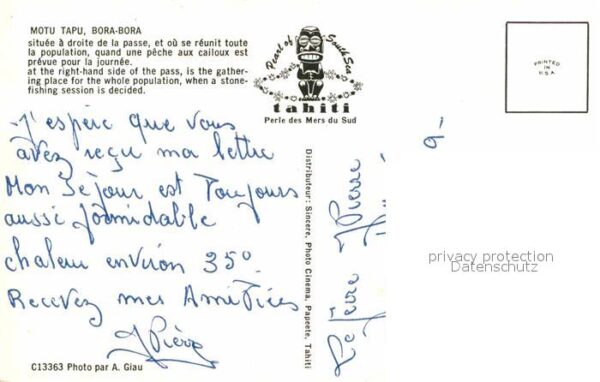 MOTU TAPU, BORA-BORA
située à droite de la passe, et où se réunit toute
la population, quand une pêche aux cailoux est
prévue pour la journée.
at the right-hand side of the pass, is the gather-
ing place for the whole population, when a stone-
fishing session is decided.
Pearl of South Sea
tahiti
Perle des Mers du Sud
PRINTED IN
U.S.A.
J'espère que vous
avez reçu ma lettre
Mon Séjour est Toujours
aussi formidable
chaleur environ 35°
Recevez mes Amitiées
JPierre
C13363 Photo par A. Giau
Distributeur: Sincere, Photo Cinema, Papeete, Tahiti
JPierre
privacy protection
Datenschutz